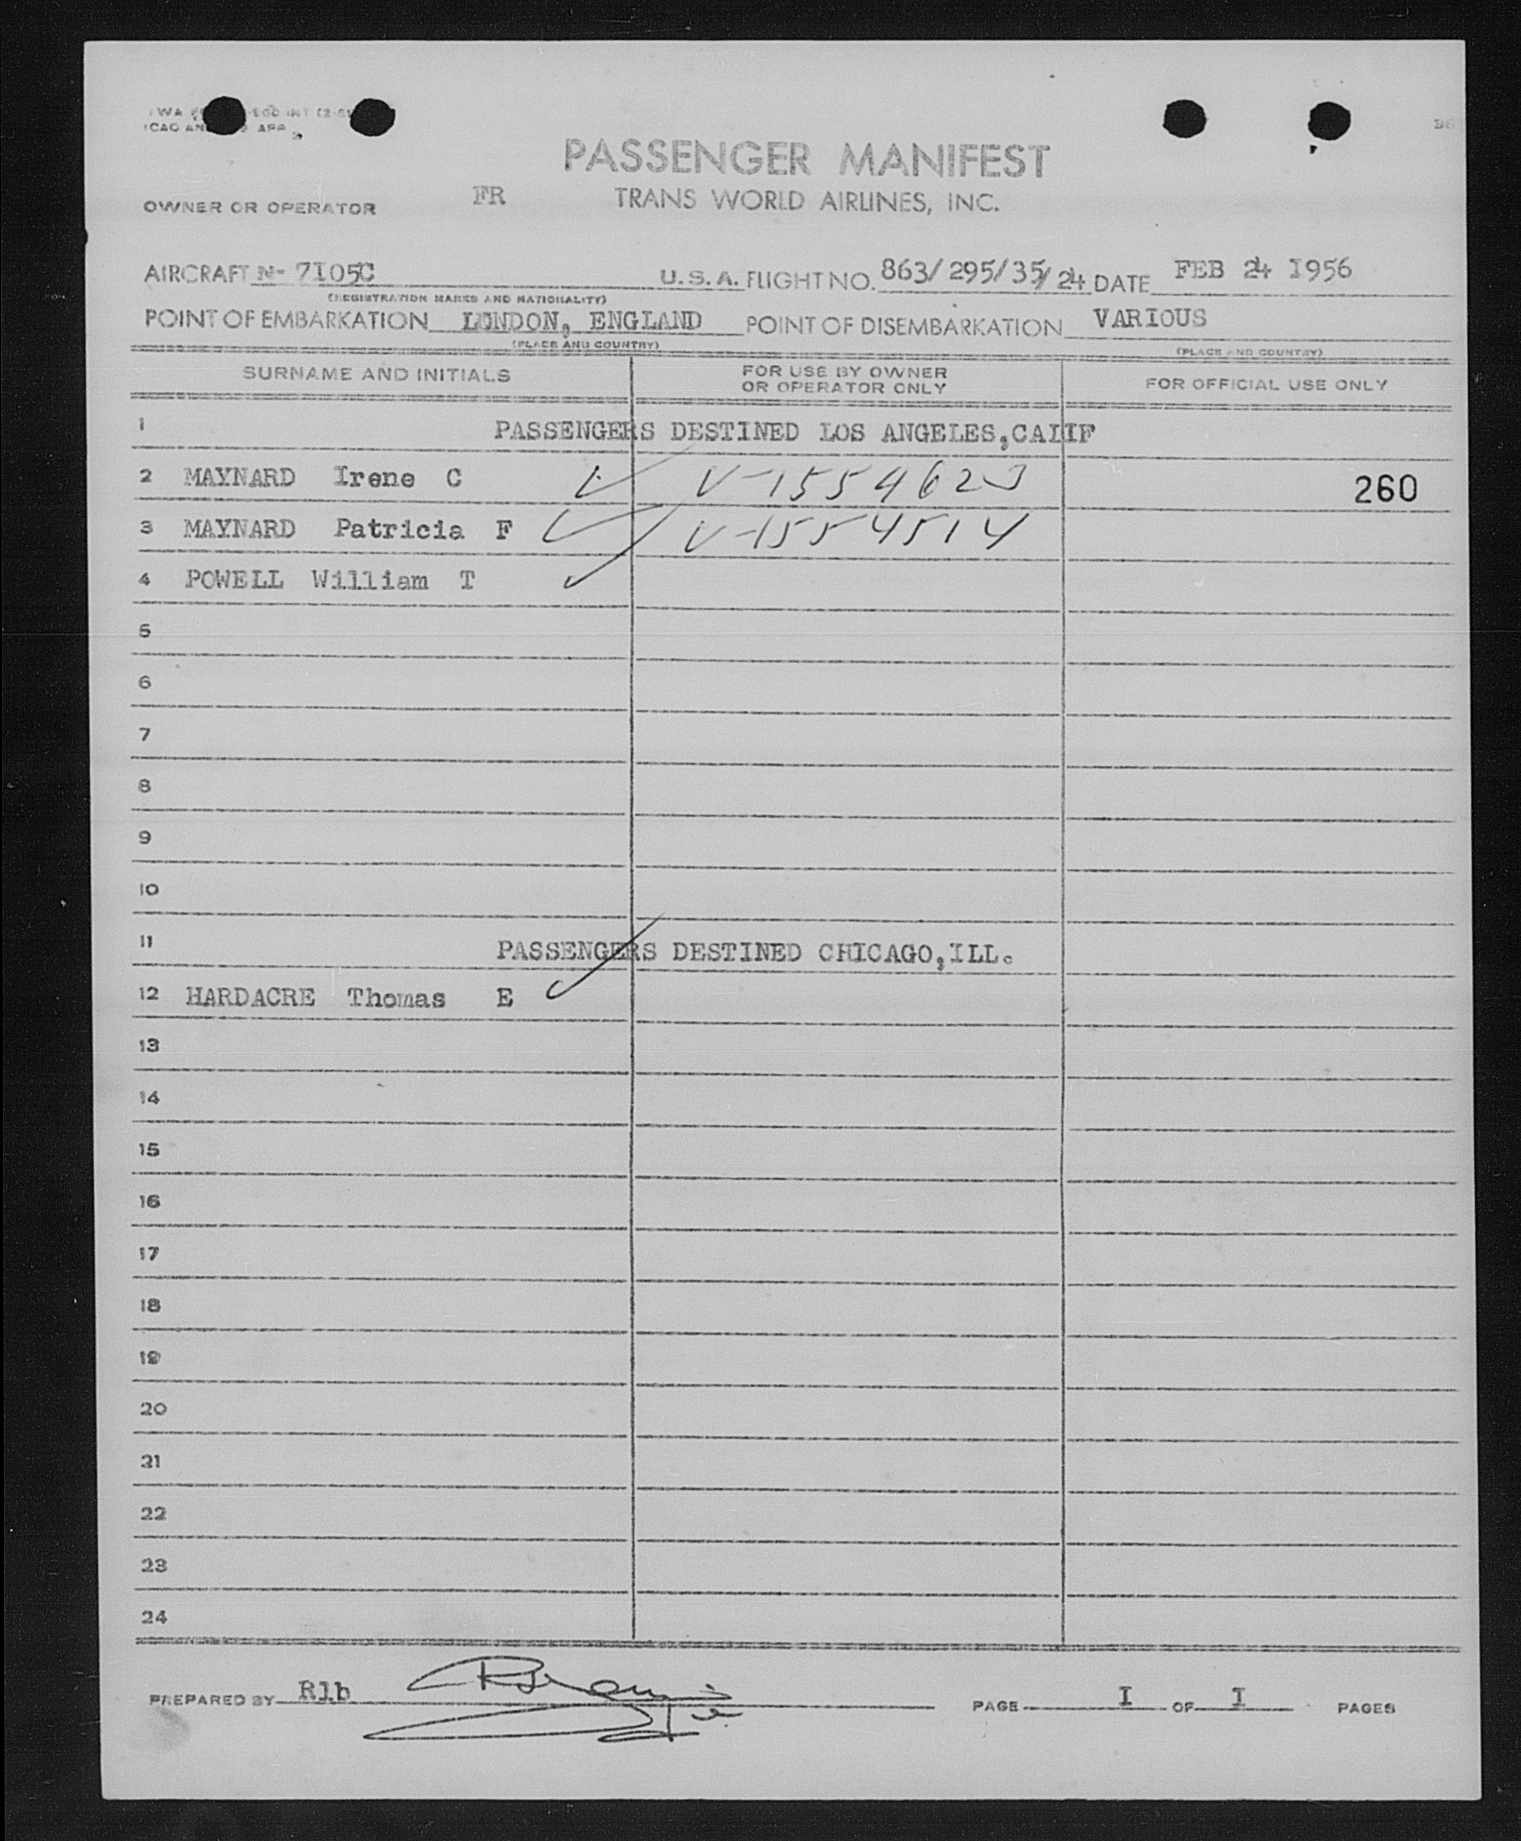 PASSENGER MANIFEST
OWNER OR OPERATOR FR TRANS WORLD AIRLINES, INC.
AIRCRAFT N- 7I05C U.S.A. FLIGHT NO. 863/295/35/24 DATE FEB 24 I956
(REGISTRATION MARKS AND NATIONALITY)
POINT OF EMBARKATION LONDON, ENGLAND POINT OF DISEMBARKATION VARIOUS
(PLACE AND COUNTRY) (PLACE AND COUNTRY)
SURNAME AND INITIALS FOR USE BY OWNER OR OPERATOR ONLY FOR OFFICIAL USE ONLY
1 PASSENGERS DESTINED LOS ANGELES,CALIF
2 MAYNARD Irene C V-1554623 260
3 MAYNARD Patricia F V-1554514
4 POWELL William T
5
6
7
8
9
10
11 PASSENGERS DESTINED CHICAGO,ILL.
12 HARDACRE Thomas E
13
14
15
16
17
18
19
20
21
22
23
24
PREPARED BY Rlb PAGE I OF I PAGES